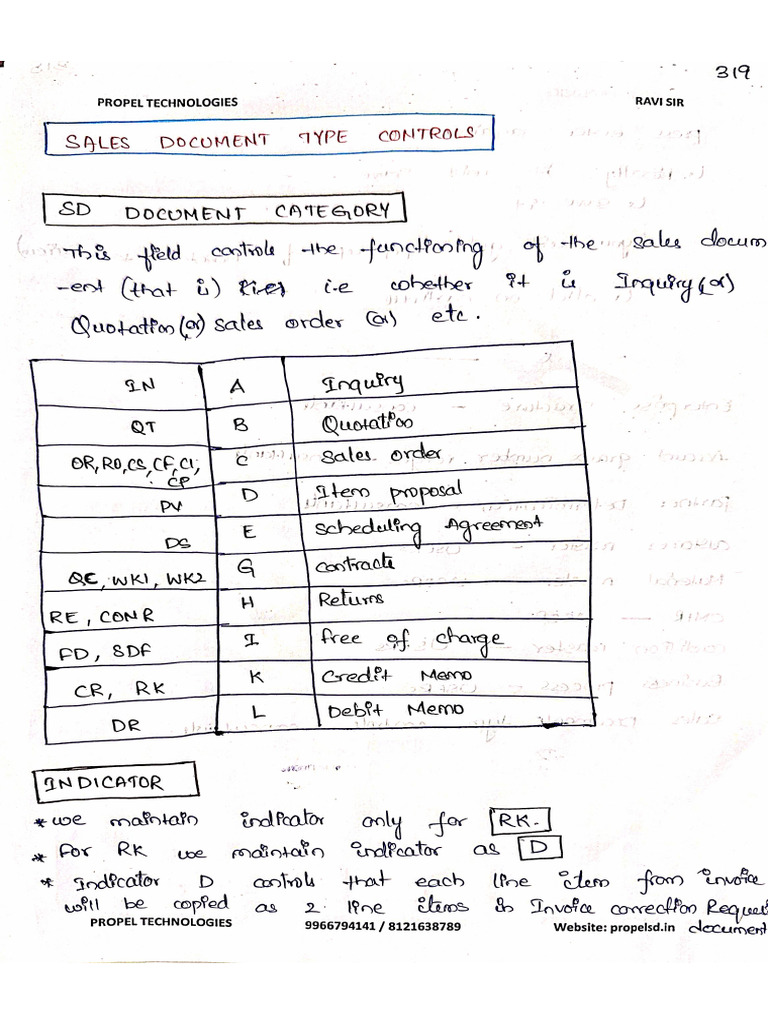 319
PROPEL TECHNOLOGIES RAVI SIR
SALES DOCUMENT TYPE CONTROLS
SD DOCUMENT CATEGORY
This field controls the functioning of the sales docum
-ent (that is) i.e whether it is Inquiry (or)
Quotation (or) sales order (or) etc.
IN A Inquiry
QT B Quotation
OR, RO, CS, CF, CI, CP C Sales order
PV D Item proposal
DS E Scheduling Agreement
QC, WK1, WK2 G Contracts
RE, CONR H Returns
FD, SDF I free of charge
CR, RK K Credit Memo
DR L Debit Memo
INDICATOR
* we maintain indicator only for RK.
* For RK we maintain indicator as D
* Indicator D controls that each line item from invoice
will be copied as 2 line items in Invoice correction Reque
document
PROPEL TECHNOLOGIES 9966794141 / 8121638789 Website: propelsd.in